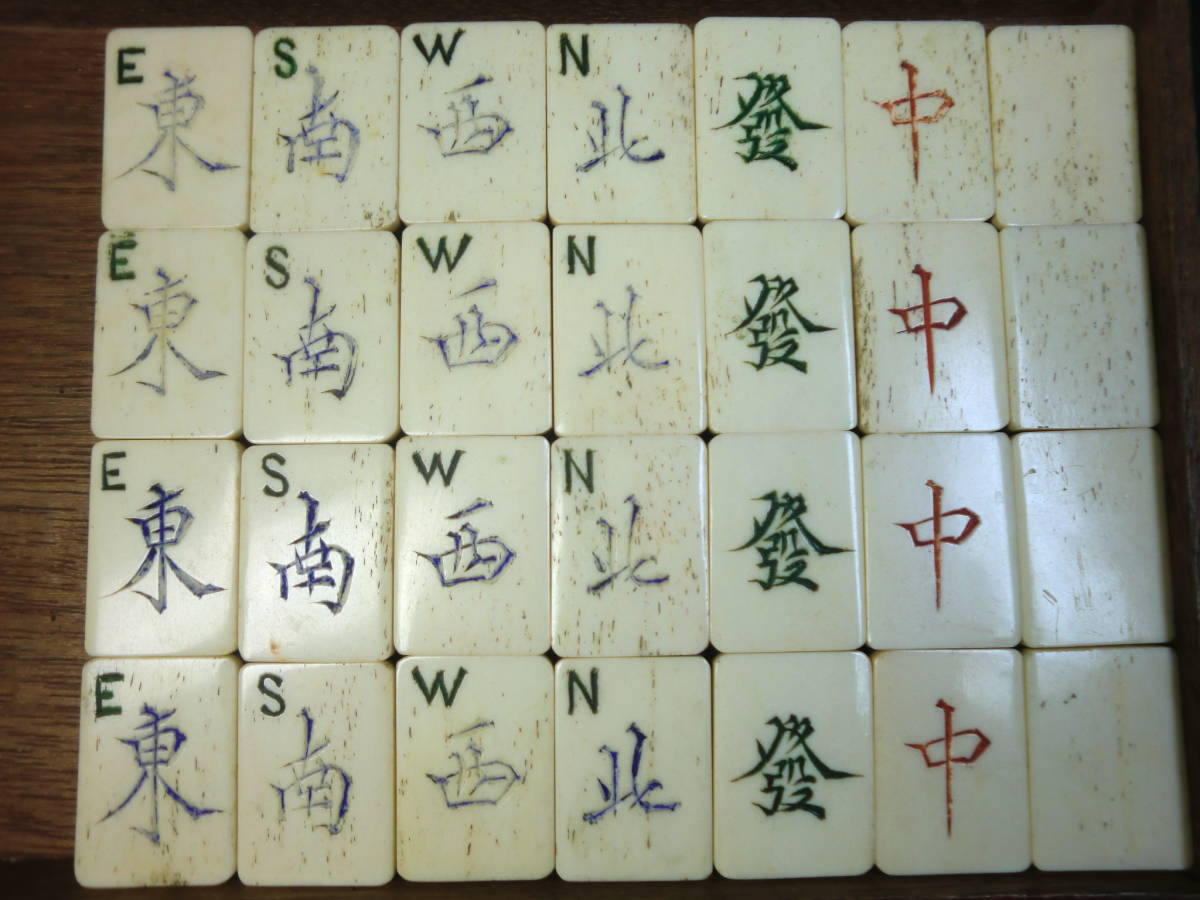 E S W N
東 南 西 北 發 中
E S W N
東 南 西 北 發 中
E S W N
東 南 西 北 發 中
E S W N
東 南 西 北 發 中